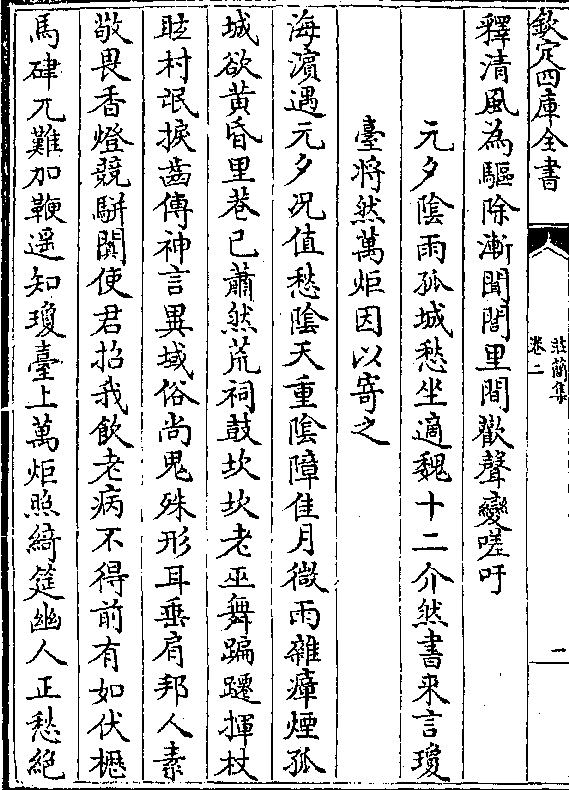 欽定四庫全書
莊簡集
卷二
二
釋清風為驅除漸聞閭里間歡聲變嗟吁
元夕陰雨孤城愁坐適魏十二介然書来言瓊
臺将然萬炬因以寄之
海濵遇元夕况值愁隂天重隂障佳月微雨雜瘴煙孤
城欲黄昏里巷已蕭然荒祠鼓坎坎老巫舞蹁躚揮杖
眩村氓捩齒傳神言異域俗尚鬼殊形耳垂肩邦人素
敬畏香燈競駢闐使君招我飲老病不得前有如伏櫪
馬硉兀難加鞭遥知瓊臺上萬炬照綺筵幽人正愁絶